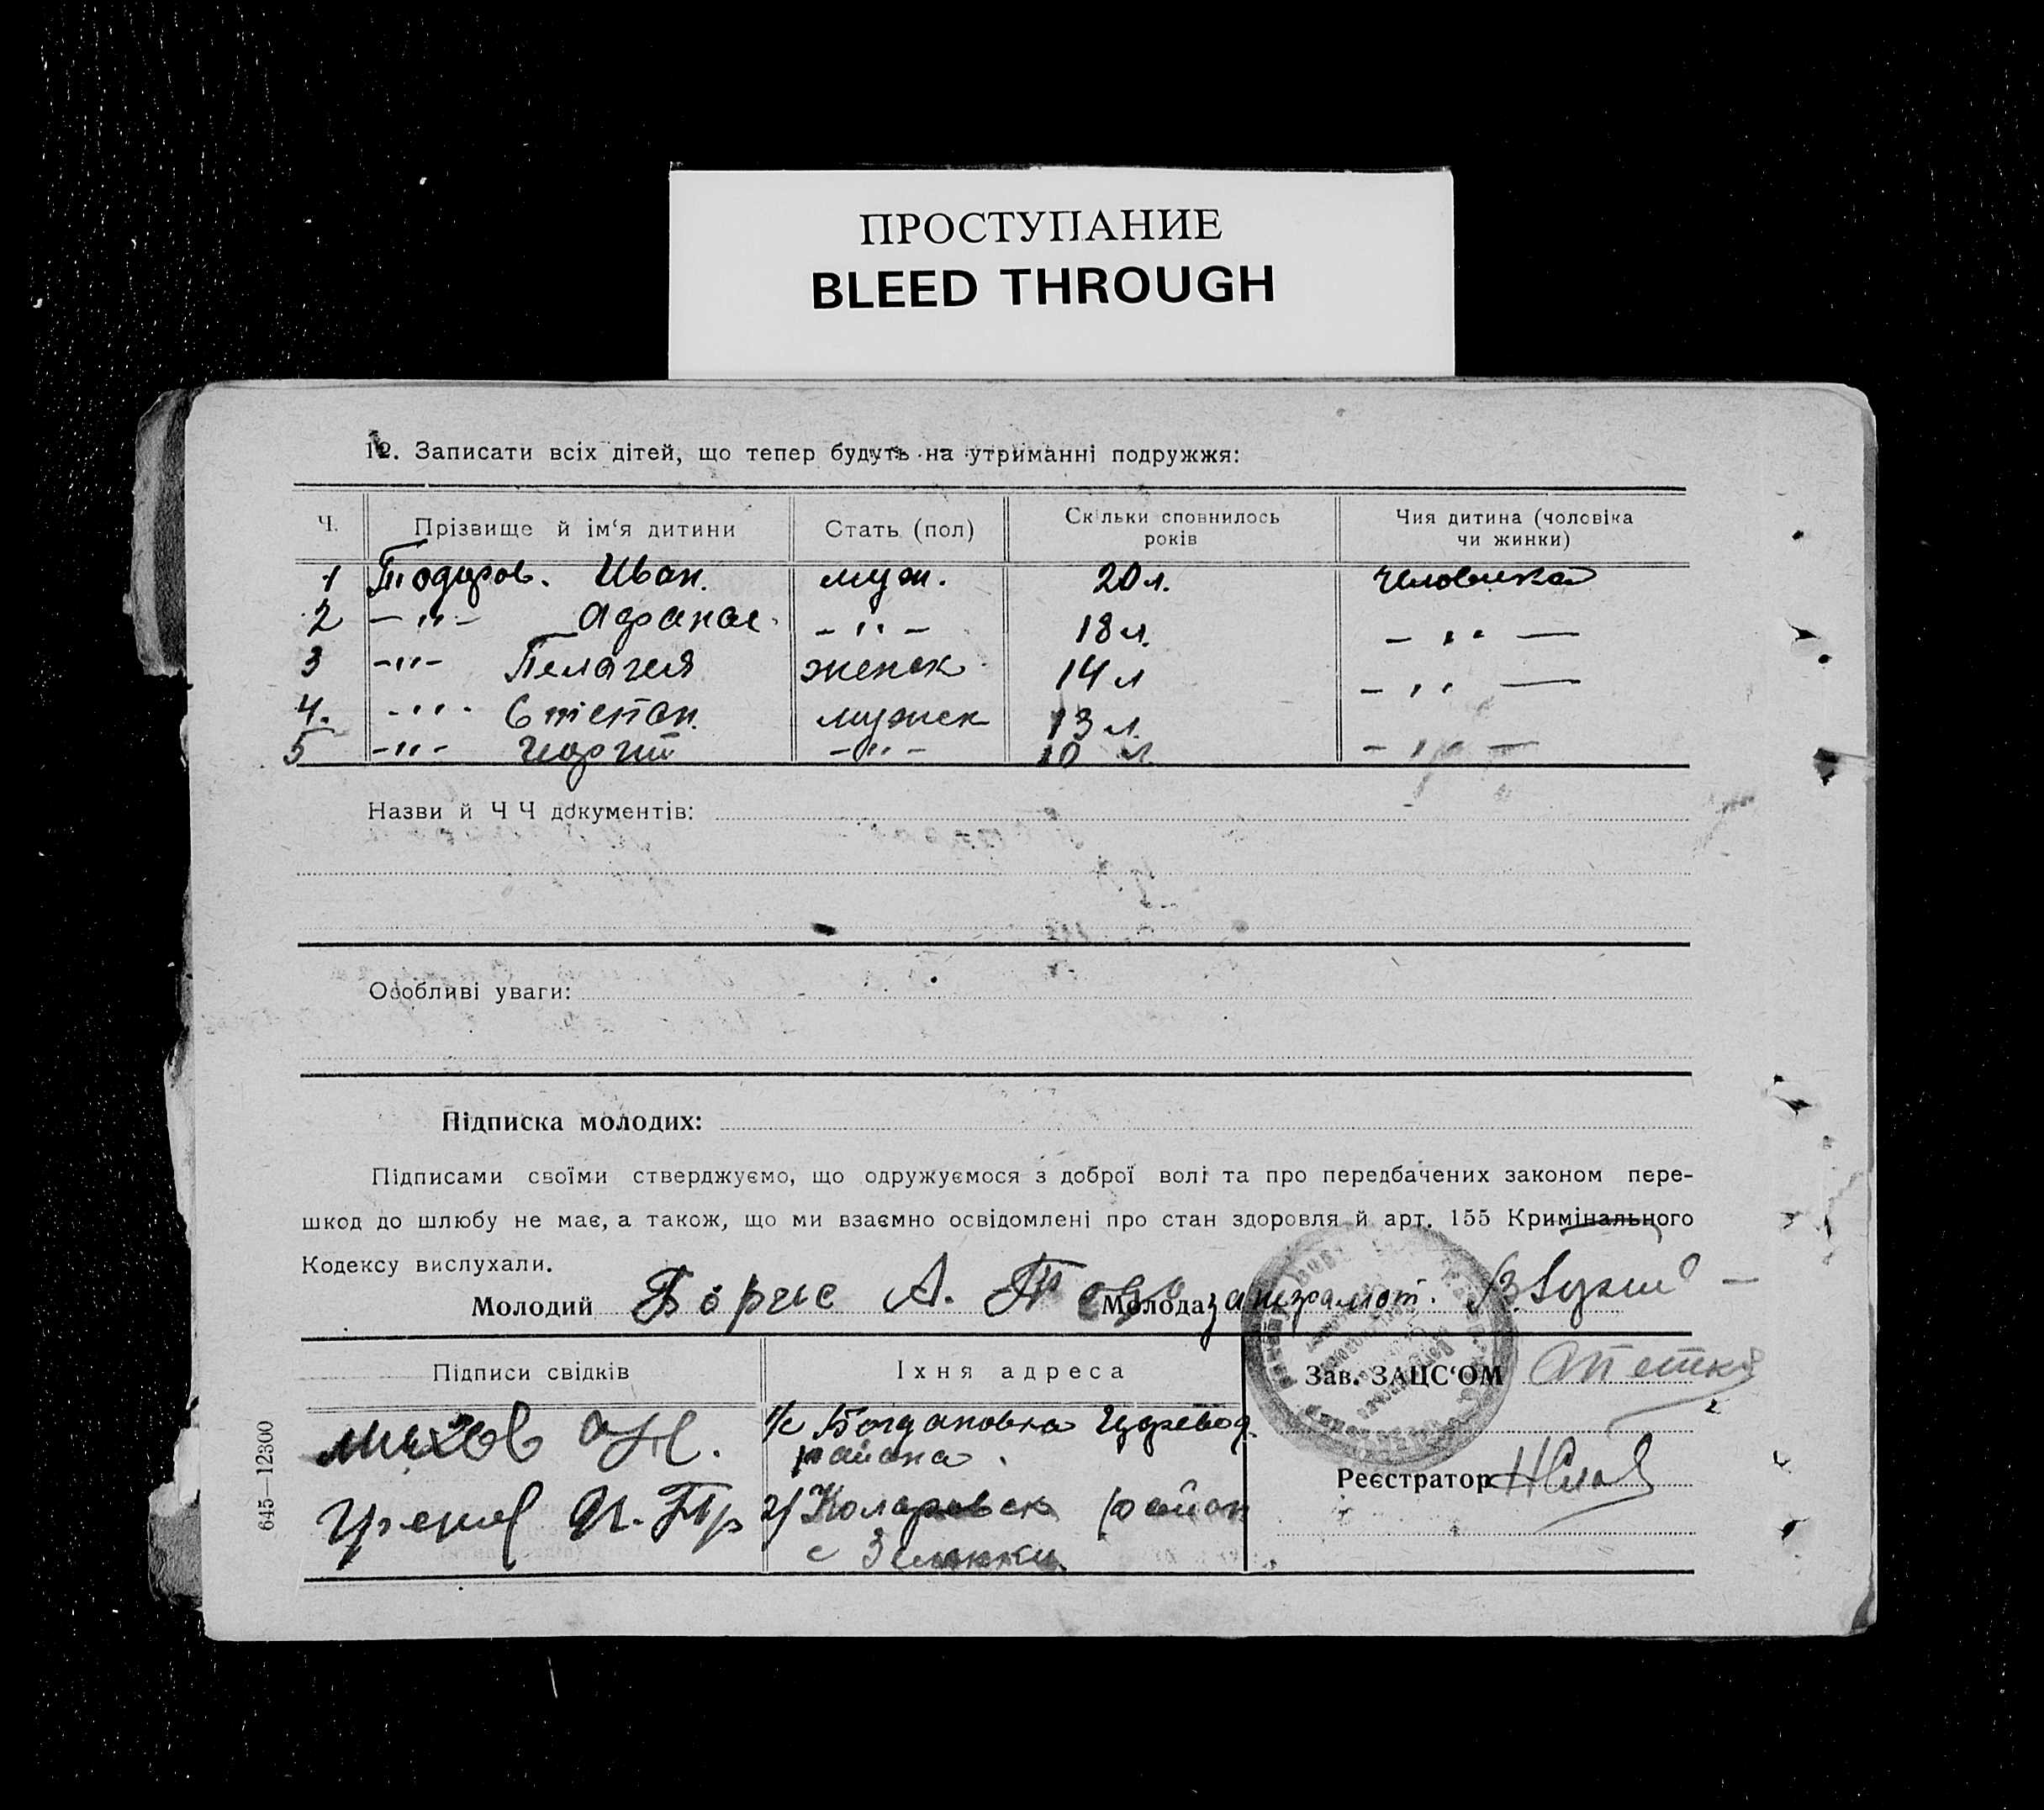 ПРОСТУПАНИЕ
BLEED THROUGH
12. Записати всіх дітей, що тепер будуть на утриманні подружжя:
Ч. Прізвище й ім‘я дитини Стать (пол) Скільки сповнилось років Чия дитина (чоловіка чи жинки)
1 Тодуров. Иван. муж. 20 л. Человика
2 —〃— Афанас. —〃— 18 л. —〃—
3 —〃— Пелагея женск 14 л —〃—
4. —〃— Степан. мужск 13 л.
5 —〃— Георгий —〃— 10 л. —〃—
Назви й Ч Ч документів:
Особливі уваги:
Підписка молодих:
Підписами своїми стверджуємо, що одружуємося з доброї волі та про передбачених законом пере-
шкод до шлюбу не має, а також, що ми взаємно освідомлені про стан здоровля й арт. 155 Кримінального
Кодексу вислухали.
Молодий Борис А. Молода
Підписи свідків Їхня адреса Зав. ЗАЦС‘ОМ
1/с Богдановка
района.
Реєстратор
2/ Коларовск район
с
645—12300